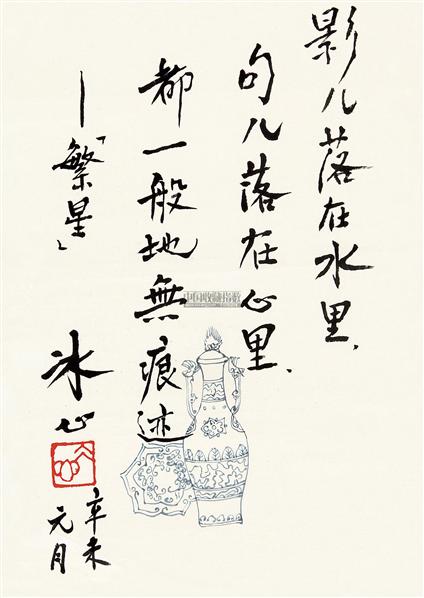 影儿落在水里、
句儿落在心里、
都一般地無痕迹
—「繁星」
冰心
辛未
元月
中国收藏指数